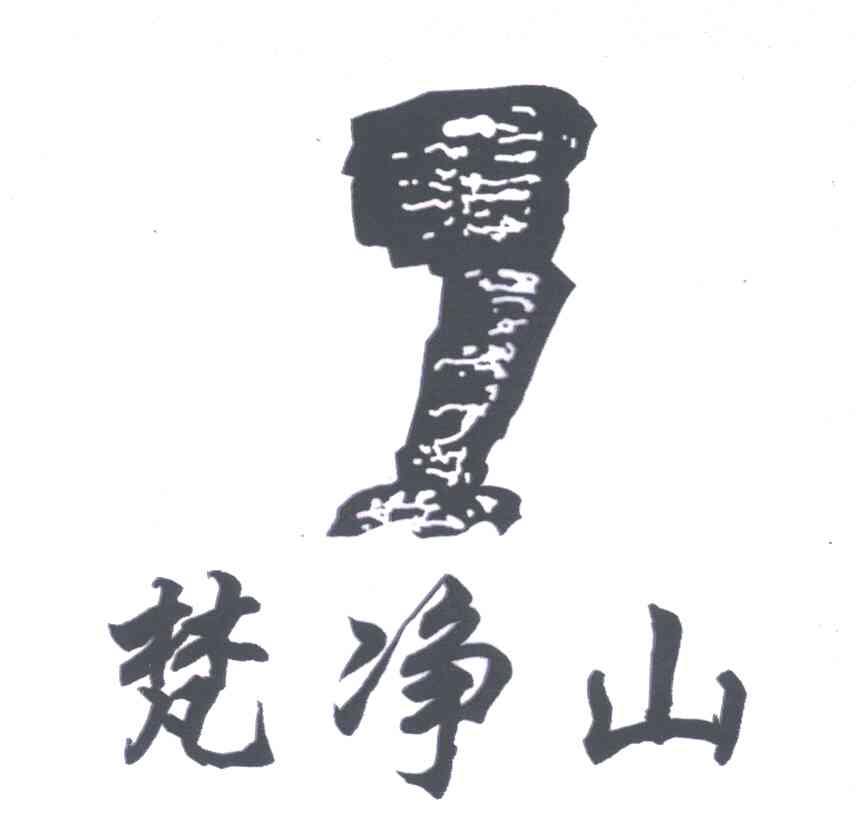 梵净山